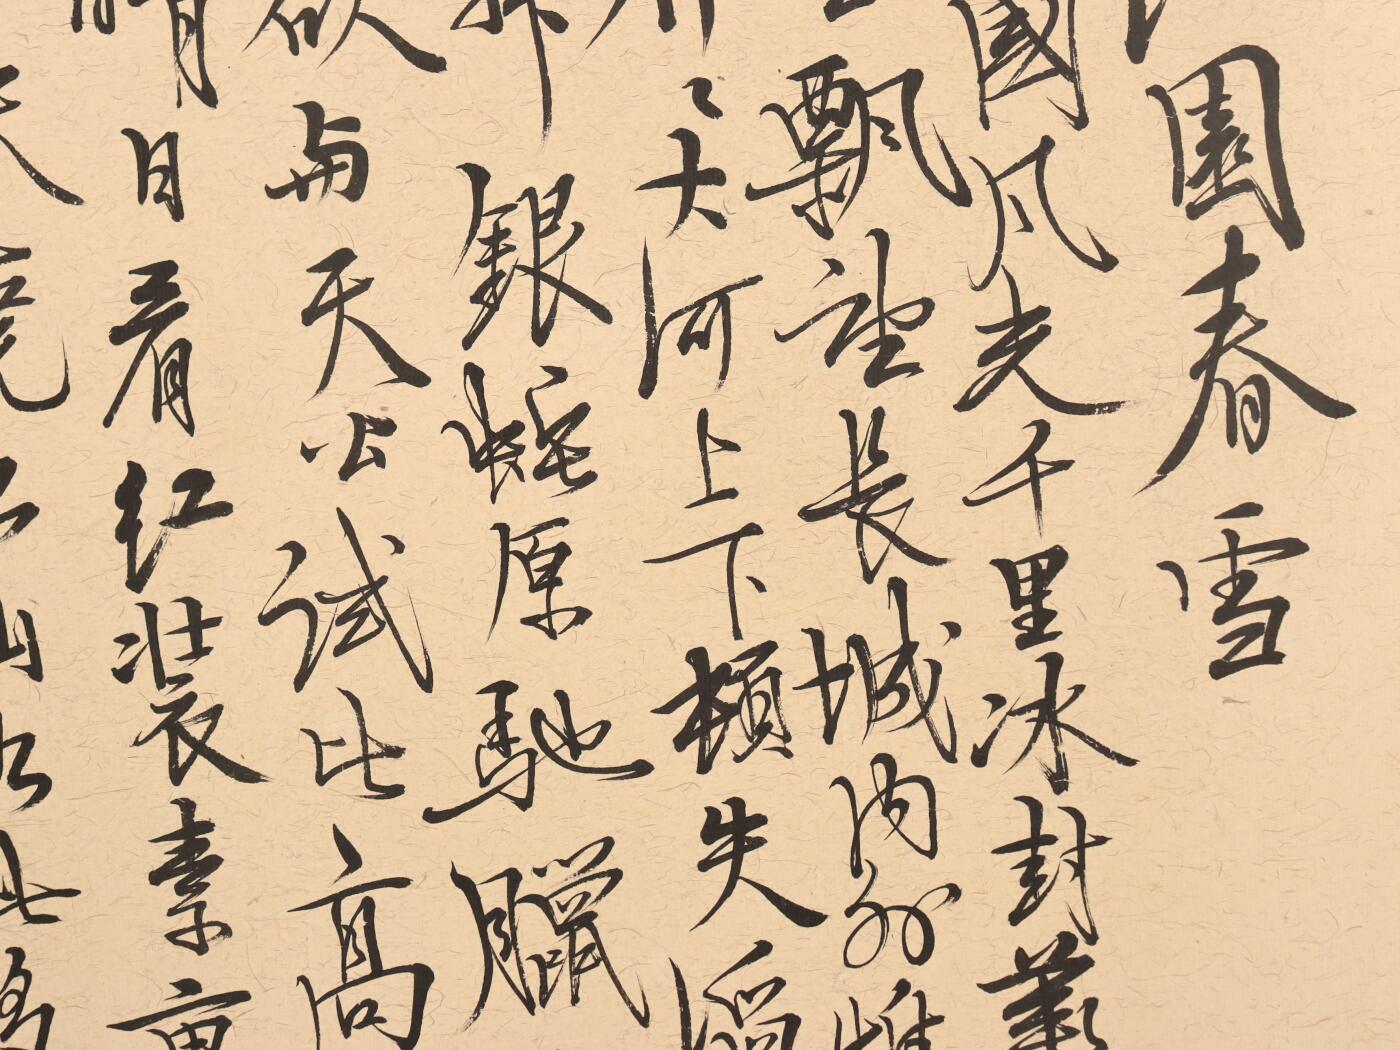 園春雪
國風光千里冰封萬
飄望長城内外惟
〻大河上下頓失滔
銀蛇原馳臘
欲与天公試比高
晴日看红装素裹